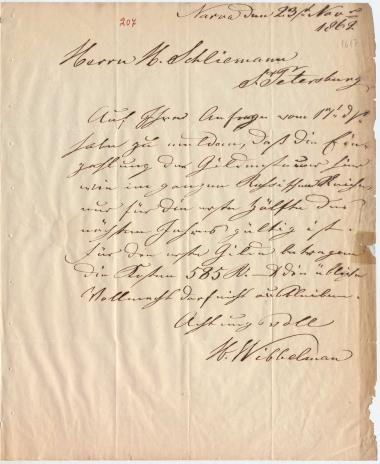 207
Narva den 23st Novr
1862.
1617
Herrn H. Schliemann
St Petersburg
Auf Ihre Anfrage vom 17t d/s
habe zu melden, daß die Ein-
zahlung der Gildensteuer hier
wie im ganzen Russischen Reiche
nur für die erste Hälfte des
nächsten Jahres gültig ist.
Für den erste Gilde betragen
die Kosten 585 R. die übliche
Vollmacht darf nicht ausbleiben.
Achtungsvoll
H. Wibbelman